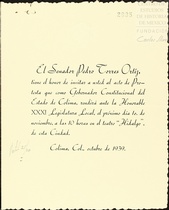 El Senador Pedro Torres Ortiz,
tiene el honor de invitar a usted al acto de Pro-
testa que como Gobernador Constitucional del
Estado de Colima, rendirá ante la Honorable
XXXI Legislatura Local, el próximo día 1o. de
noviembre, a las 10 horas en el teatro "Hidalgo",
de esta Ciudad.
Colima, Col., octubre de 1939.